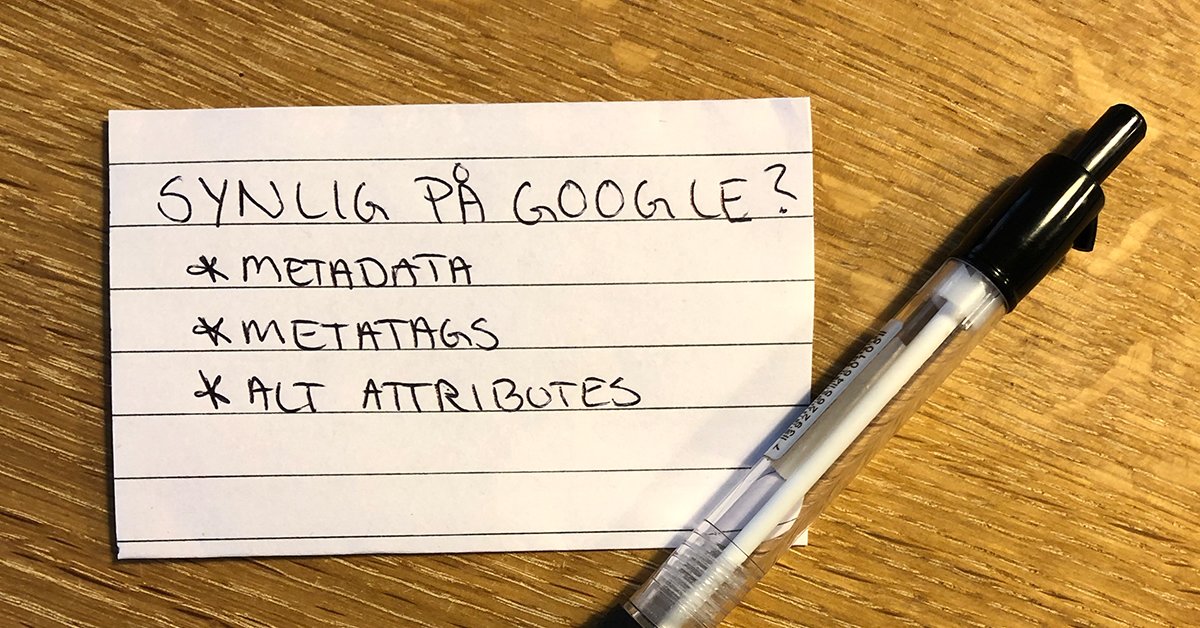 SYNLIG PÅ GOOGLE?
* METADATA
* METATAGS
* ALT ATTRIBUTES